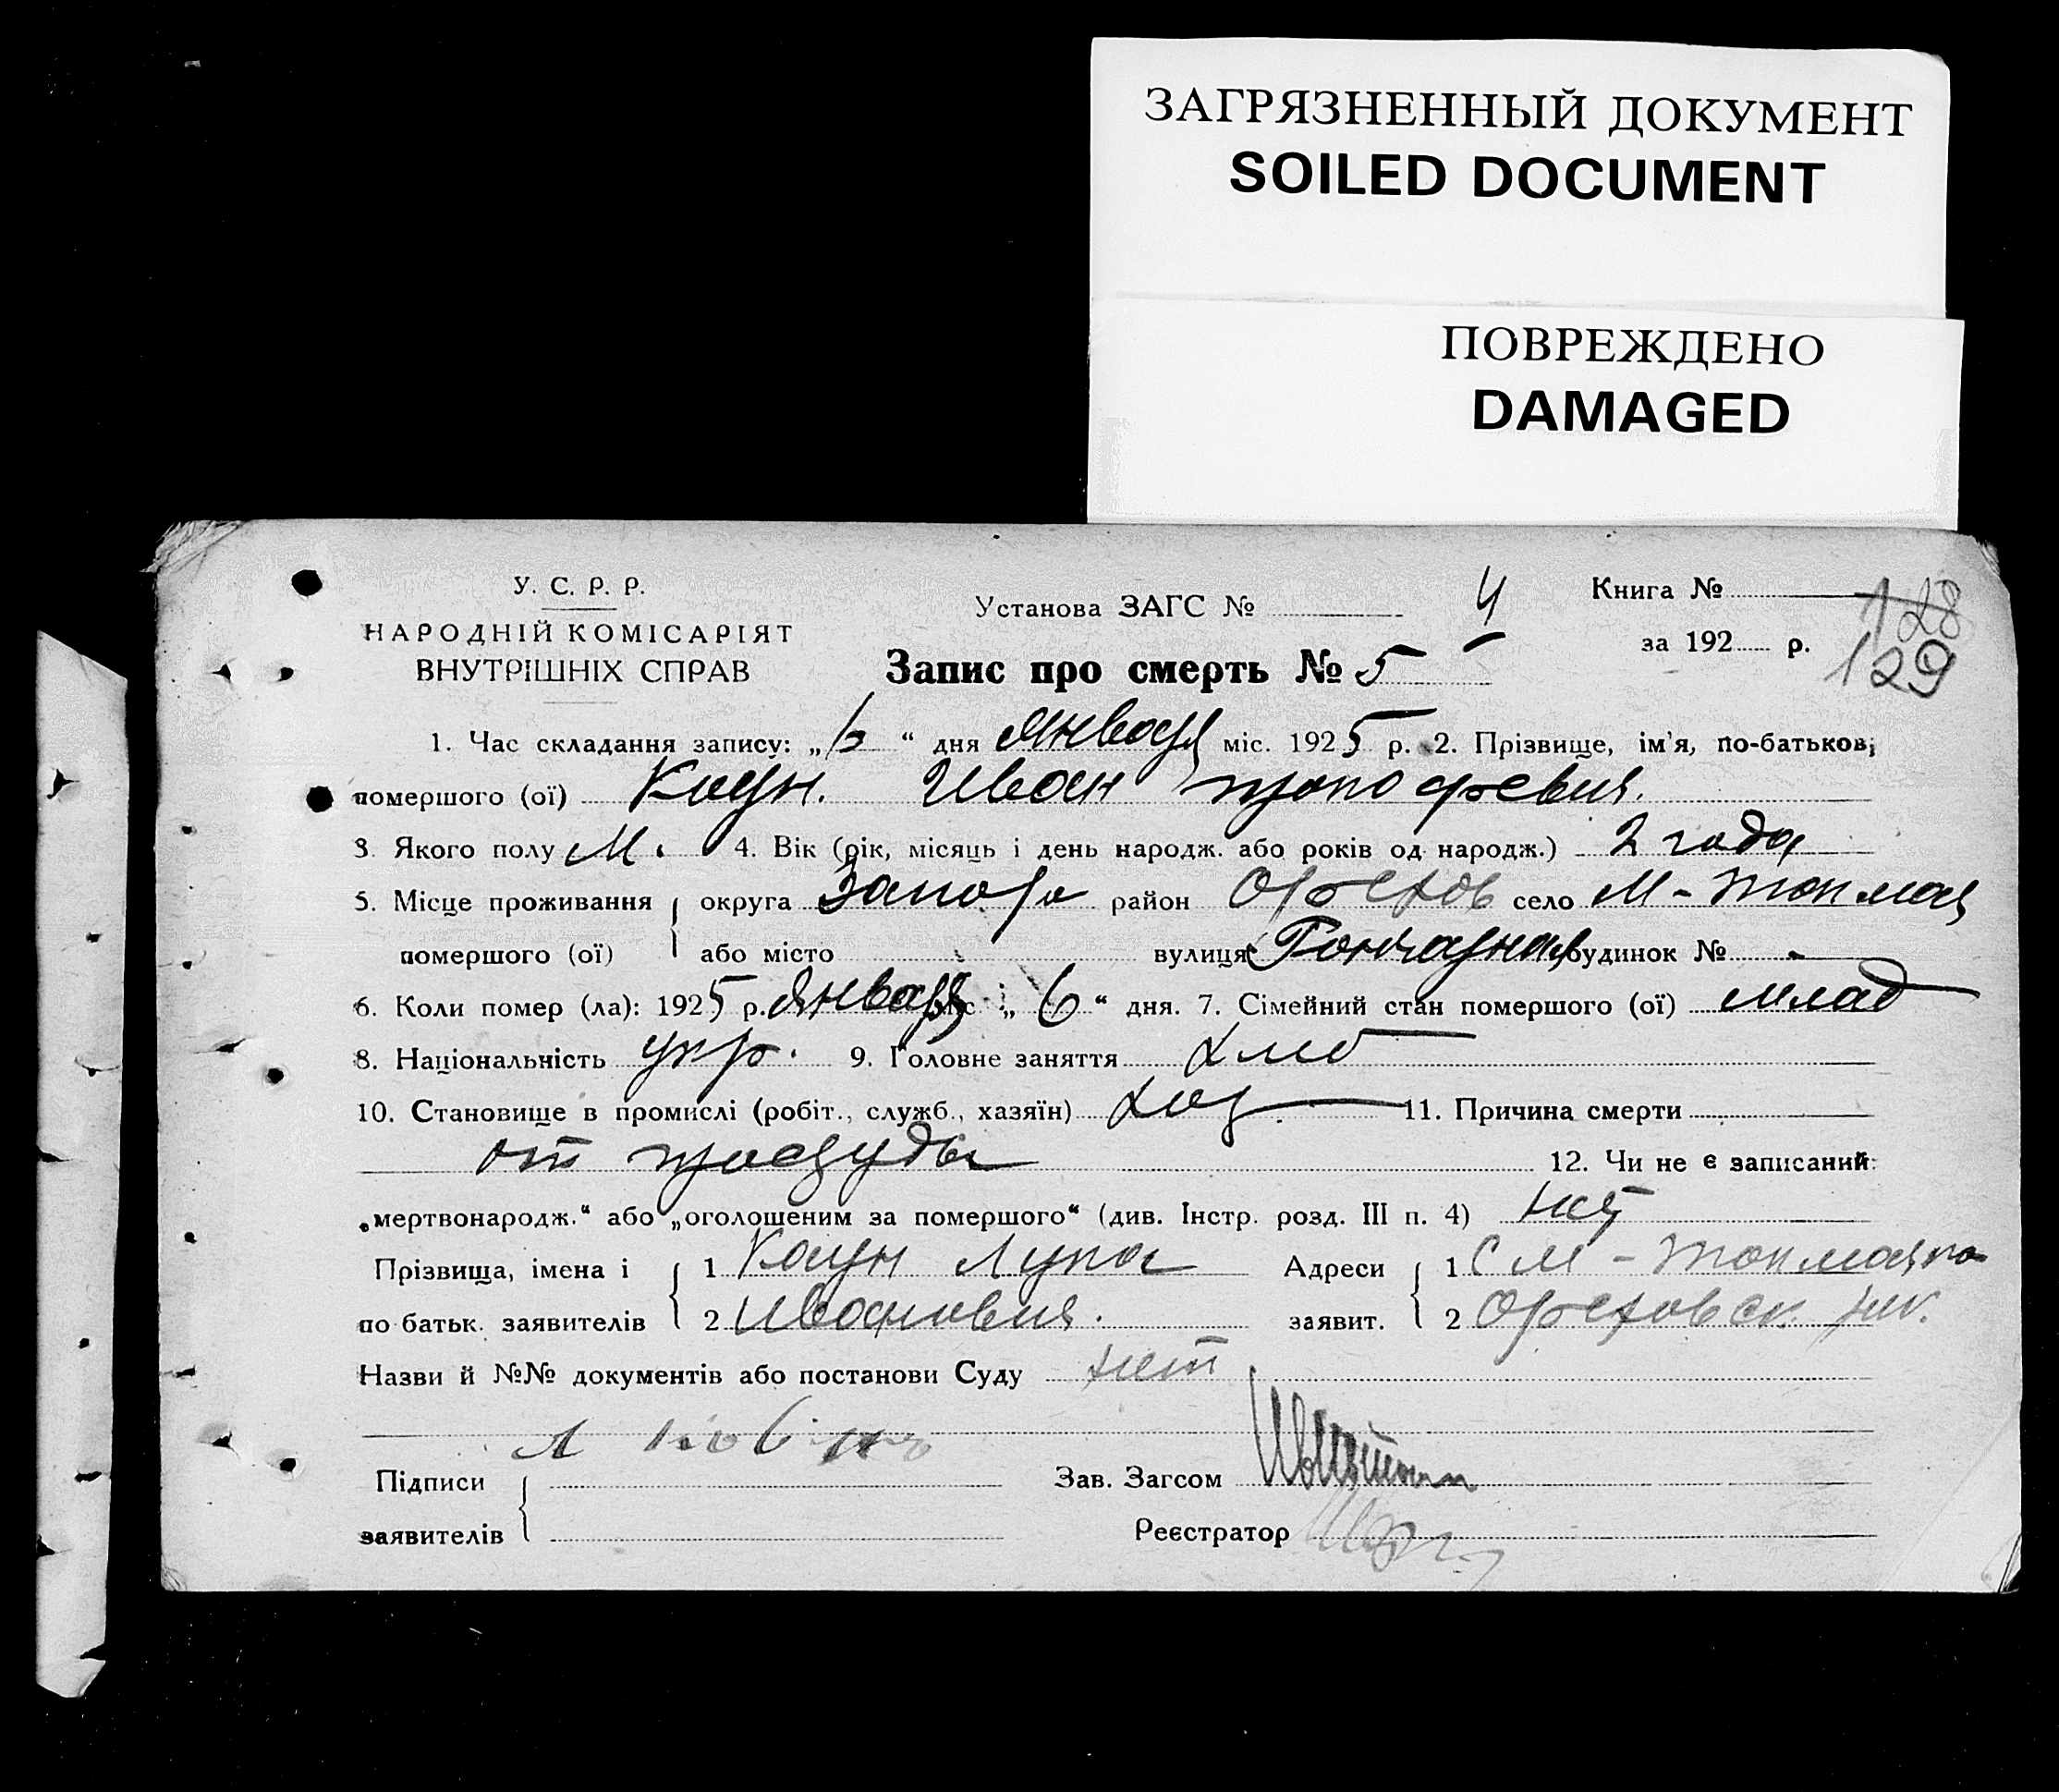 ЗАГРЯЗНЕННЫЙ ДОКУМЕНТ
SOILED DOCUMENT
ПОВРЕЖДЕНО
DAMAGED
У. С. Р. Р.
НАРОДНІЙ КОМІСАРІЯТ
ВНУТРІШНІХ СПРАВ
Установа ЗАГС №
4
Книга №
за 192 р.
128
129
Запис про смерть № 5
1. Час складання запису: „6“ дня Января міс. 1925 р. 2. Прізвище, ім'я, по-батькові
помершого (ої) Каун. Иван
3. Якого полу М. 4. Вік (рік, місяць і день народж. або років од народж.) 2 года
5. Місце проживання округа Запор район Орехов село М-Токмач
помершого (ої) або місто вулиця Гончарная будинок № -
6. Коли помер (ла): 1925 р. Января міс „6“ дня. 7. Сімейний стан помершого (ої) млад
8. Національність укр. 9. Головне заняття хлеб
10. Становище в промислі (робіт., служб., хазяїн) хоз 11. Причина смерти
от простуды 12. Чи не є записаний:
„мертвонародж.“ або „оголошеним за помершого“ (див. Інстр. розд. III п. 4) нет
Прізвища, імена і 1 Каун Лука Адреси 1 С М-Токмач
по батьк. заявителів 2 Иванович. заявит. 2 Ореховск.
Назви й №№ документів або постанови Суду нет
Підписи Зав. Загсом
заявителів Реєстратор